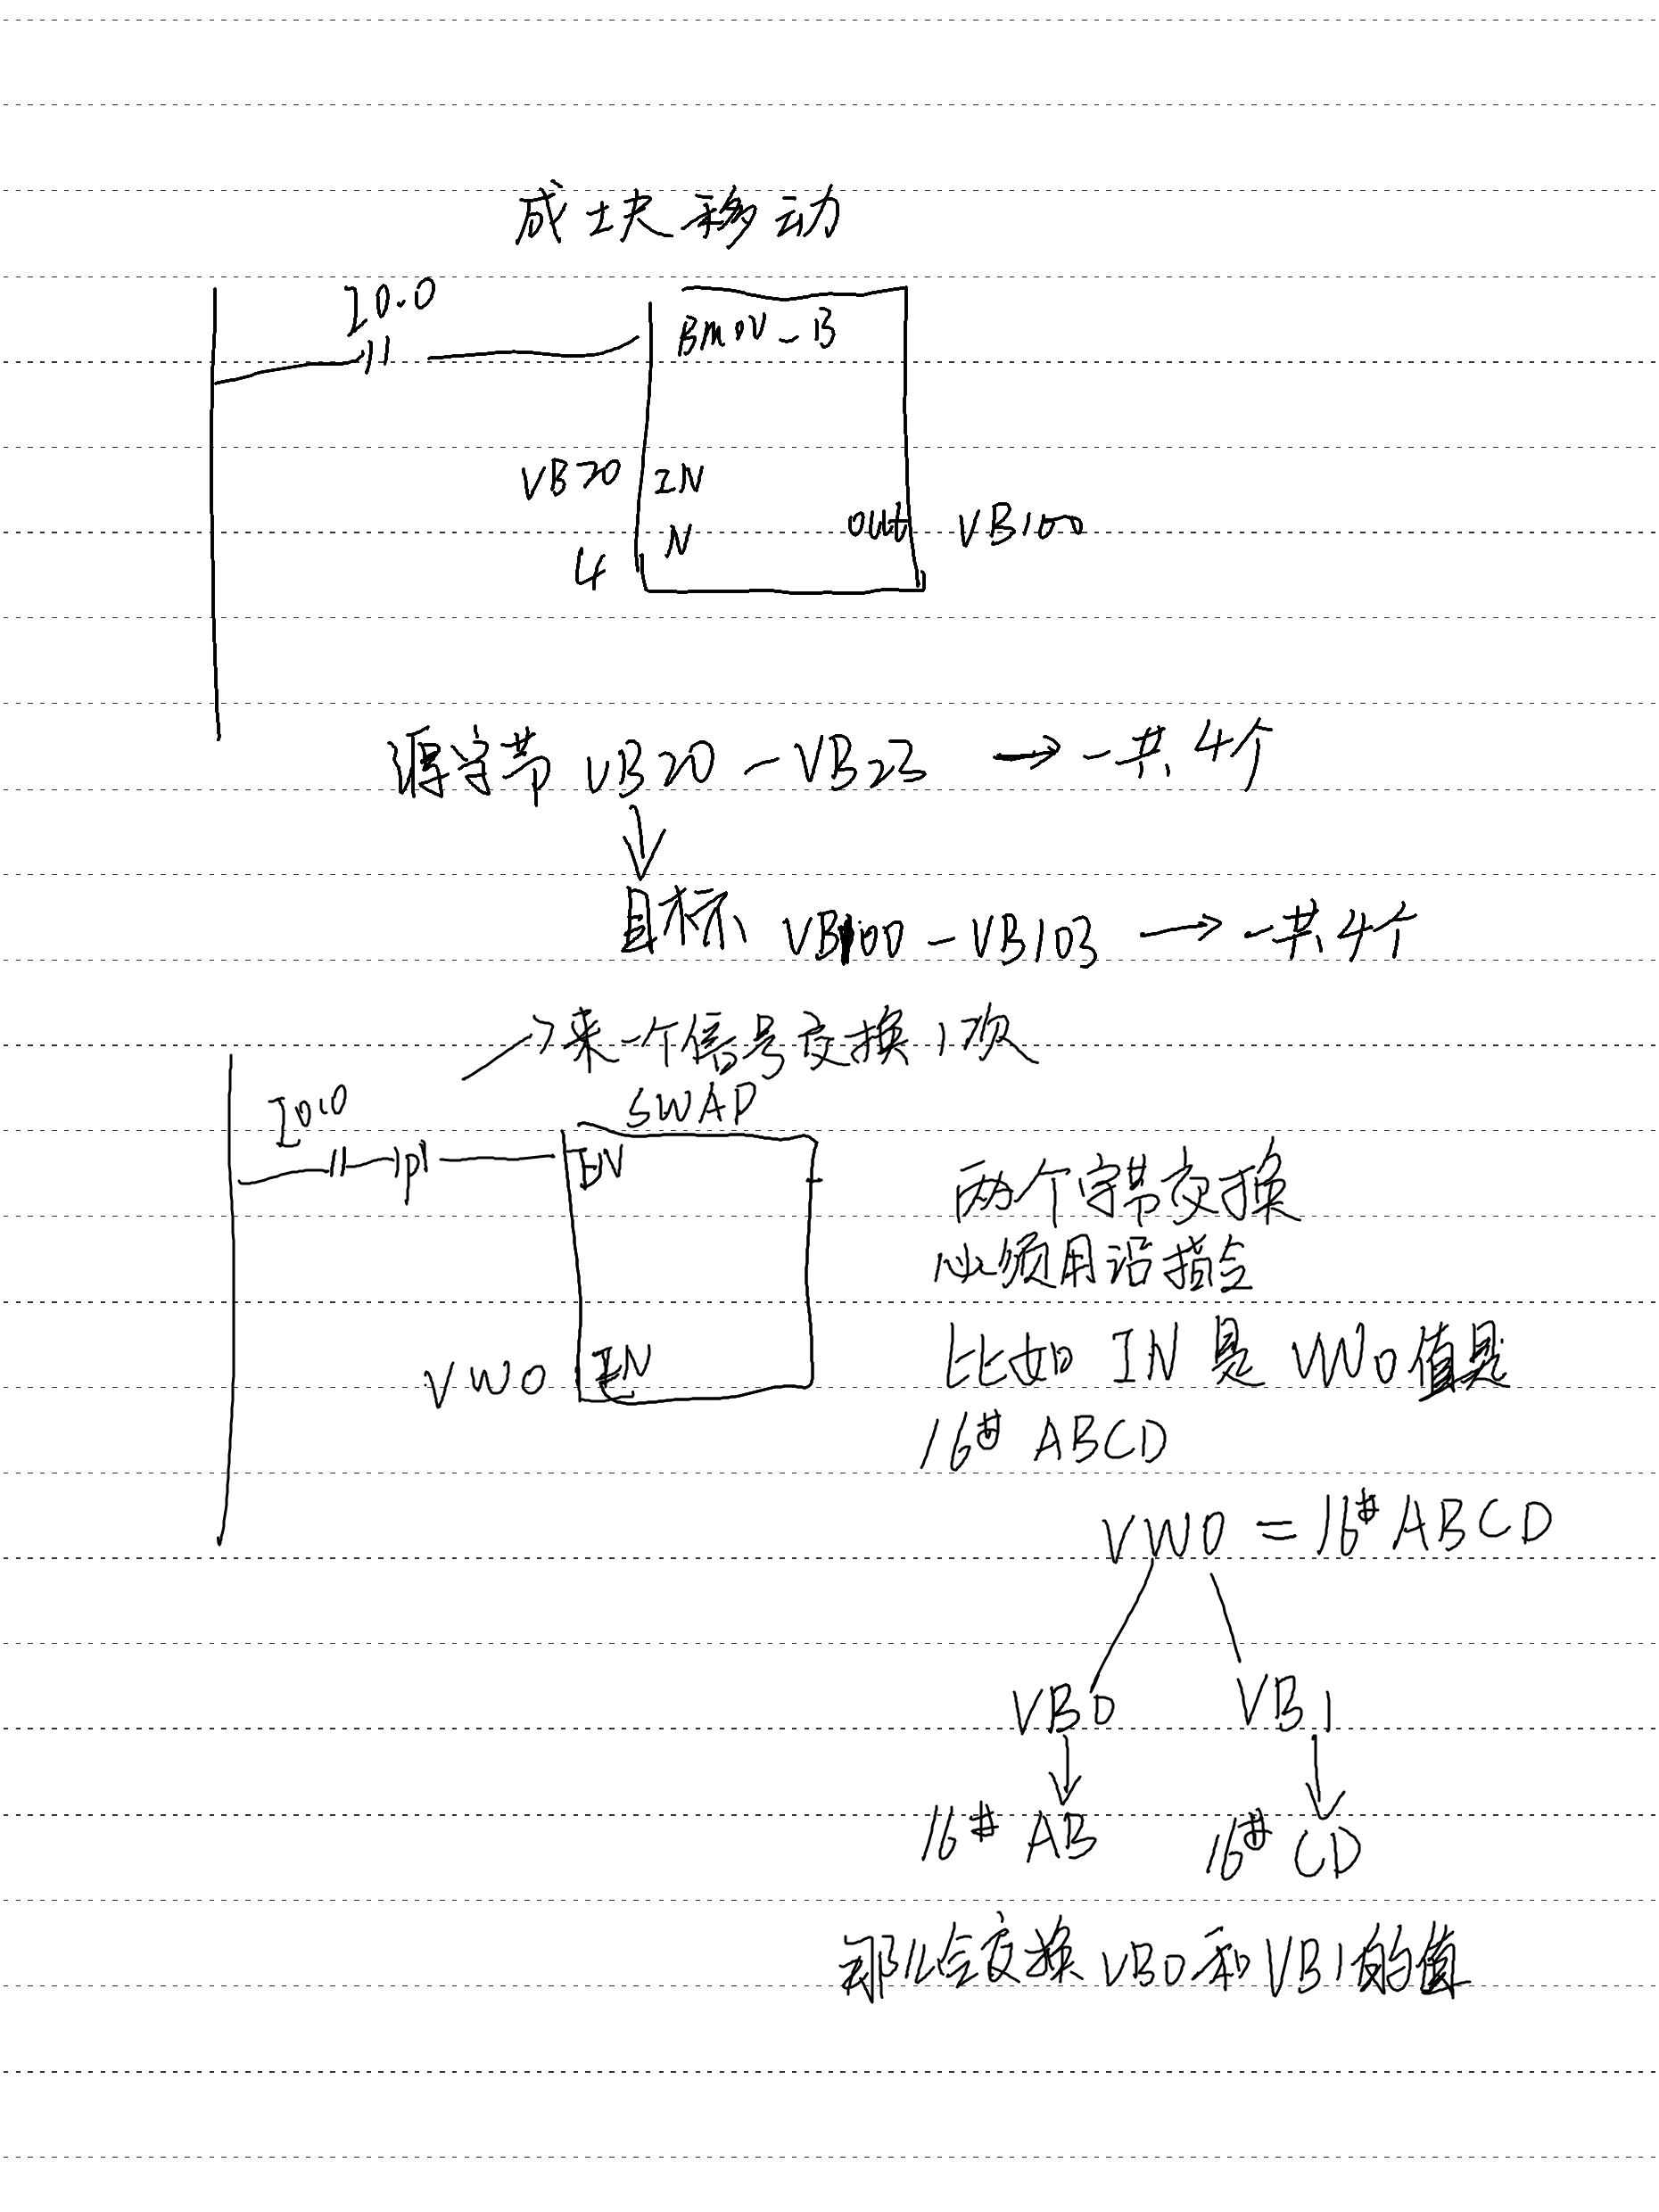 成块移动
I0.0
BMOV_B
VB20 IN
N out VB100
4
源字节 VB20 - VB23 → 一共4个
↓
目标 VB100 - VB103 → 一共4个
→来一个信号交换1次
SWAP
I0.0
P EN
两个字节交换
必须用沿指令
VW0 IN
比如 IN 是 VW0 值是
16# ABCD
VW0 = 16# ABCD
VB0 VB1
↓ ↓
16# AB 16# CD
那么会交换 VB0 和 VB1 的值